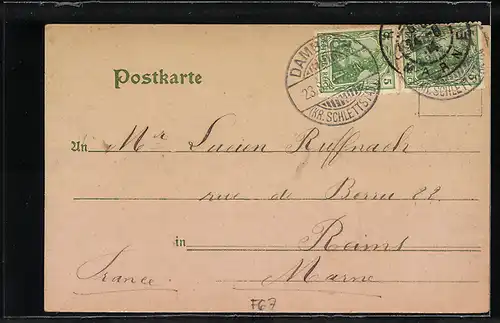 Postkarte
DAMB
23.
(KR. SCHLETTST
5
KR. SCHLETTST
An Mr Lucien Ruffnach
rue de Berru 22.
in Reims
France. Marne
F67